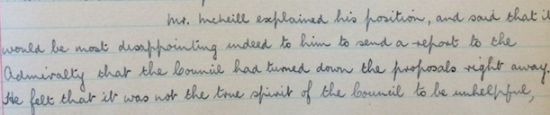 Mr. McNeill explained his position, and said that it
would be most disappointing indeed to him to send a report to the
Admiralty that the Council had turned down the proposals right away.
He felt that it was not the true spirit of the Council to be unhelpful,